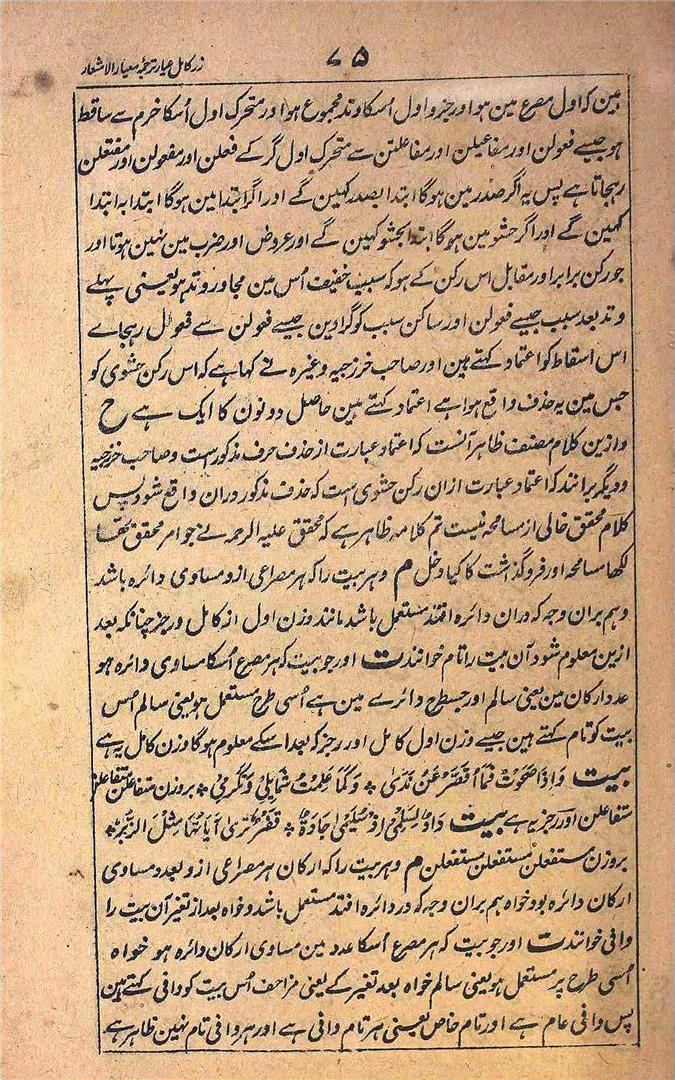 ۷۵
زر کامل عیار ترجمۂ معیار الاشعار
ہین کہ اول مصرع مین ہو اور جزو اول اُسکا وتد مجموع ہو اور متحرک اول اُسکا خرم سے ساقط
ہو جیسے فعولن اور مفاعیلن اور مفاعلتن سے متحرک اول گر کے فعلن اور مفعولن اور مفتعلن
رہجاتا ہے پس یہ اگر صدر مین ہوگا ابتدا بصدر کہین گے اور اگر ابتدا مین ہوگا ابتدا بہ ابتدا
کہین گے اور اگر حشو مین ہوگا ابتدا بحشو کہین گے اور عروض اور ضرب مین نہین ہوتا اور
جو رکن برابر اور مقابل اس رکن کے ہو کہ سبب خفیف اُس مین مجاور وتد ہو یعنی پہلے
وتد بعد سبب جیسے فعولن اور ساکن سبب کو گراوین جیسے فعولن سے فعول رہجاے
اس اسقاط کو اعتماد کہتے ہین اور صاحب خزرجیہ وغیرہ نے کہا ہے کہ اس رکن حشوی کو
جس مین یہ حذف واقع ہوا ہے اعتماد کہتے ہین حاصل دونون کا ایک ہے ح
و ازین کلام مصنف ظاہر آنست کہ اعتماد عبارت از حذف حرف مذکورست و صاحب خزرجیہ
و دیگر برانند کہ اعتماد عبارت ازان رکن حشوی است کہ حذف مذکور دران واقع شود پس
کلام محقق خالی از مسامحہ نیست تم کلامہ ظاہر ہے کہ محقق علیہ الرحمہ نے جو امر محقق تھا
لکھا مسامحہ اور فروگذاشت کا کیا دخل م و ہر بیت را کہ ہر مصراعی ازو مساوی دائرہ باشد
و ہم بران وجہ کہ دران دائرہ افتد مستعمل باشد مانند وزن اول از کامل و رجز چنانکہ بعد
ازین معلوم شود آن بیت را تام خوانند ت اور جو بیت کہ ہر مصرع اُسکا مساوی دائرہ ہو
عدد ارکان مین یعنی سالم اور جسطرح دائرے مین ہے اُسی طرح مستعمل ہو یعنی سالم اُس
بیت کو تام کہتے ہین جیسے وزن اول کامل اور رجز کہ بعد اسکے معلوم ہوگا وزن کامل یہ ہے
بیت وَاِذَا صَحَوْتُ فَمَا اُقَصِّرُ عَنْ نَدًى ٭ وَكَمَا عَلِمْتِ شَمَايِلِي وَتَكَرُّمِي ٭ بروزن متفاعلن متفاعلن
متفاعلن اور رجز یہ ہے بیت دَارٌ لِسَلْمٰى اِذْ سُلَيْمٰى جَارَةٌ ٭ قَفْرٌ تَرٰى آيَاتِهَا مِثْلَ الزُّبُرْ ٭
بروزن مستفعلن مستفعلن مستفعلن م و ہر بیت را کہ ارکان ہر مصراعی ازو بعدد مساوی
ارکان دائرہ بود خواہ ہم بران وجہ کہ در دائرہ افتد مستعمل باشد و خواہ بعد از تغیر آن بیت را
وافی خوانند ت اور جو بیت کہ ہر مصرع اُسکا عدد مین مساوی ارکان دائرہ ہو خواہ
اُسی طرح پر مستعمل ہو یعنی سالم خواہ بعد تغیر کے یعنی مزاحف اُس بیت کو وافی کہتے ہین
پس وافی عام ہے اور تام خاص یعنی ہر تام وافی ہے اور ہر وافی تام نہین ظاہر ہے